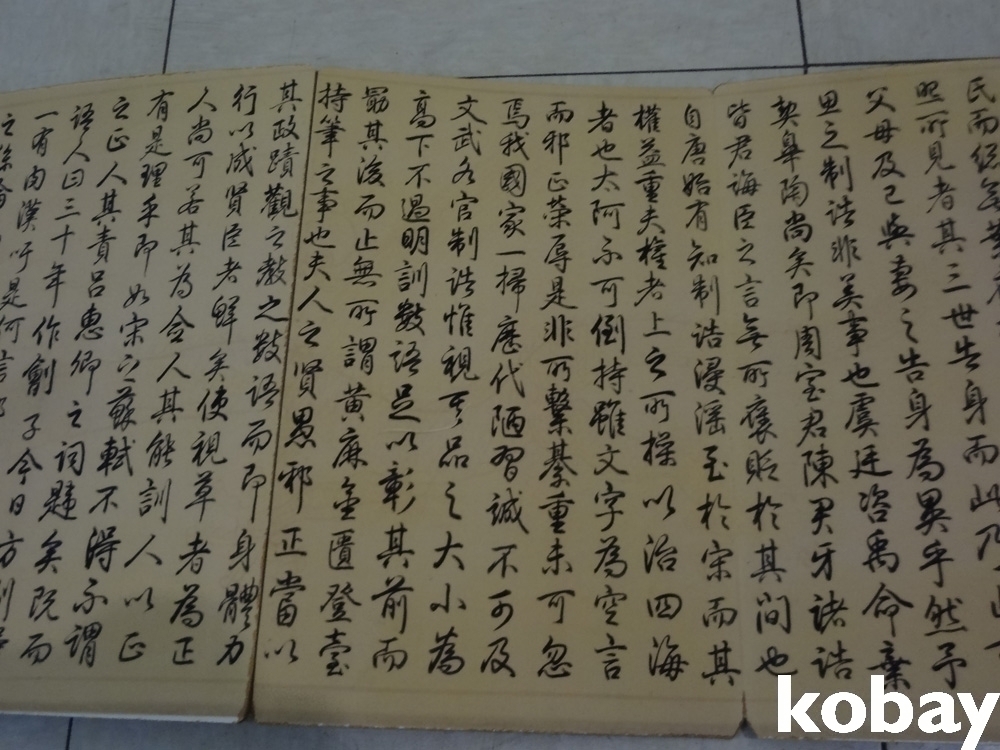 民而
照所見者其三世告身而此乃
父母及己與妻之告身為異乎然予
思之制誥非美事也虞廷咨禹命棄
契皋陶尚矣即周室君陳君牙諸誥
皆君誨臣之言無所褒貶於其間也
自唐始有知制誥浸淫至於宋而其
權益重夫權者上之所操以治四海
者也太阿不可倒持雖文字為空言
而邪正榮辱是非所繫綦重未可忽
焉我國家一掃歷代陋習誠不可及
文武各官制誥惟視其品之大小為
高下不過明訓數語足以彰其前而
勖其後而止無所謂黃麻金匱登臺
持筆之事也夫人之賢愚邪正當以
其政蹟觀之教之數語而即身體力
行以成賢臣者鮮矣使視草者為正
人尚可若其為僉人其能訓人以正
有是理乎即如宋之蘇軾不得不謂
之正人其責呂惠卿之詞韙矣既而
語人曰三十年作劊子今日方剮
一有肉漢吁是何言
之孫
kobay